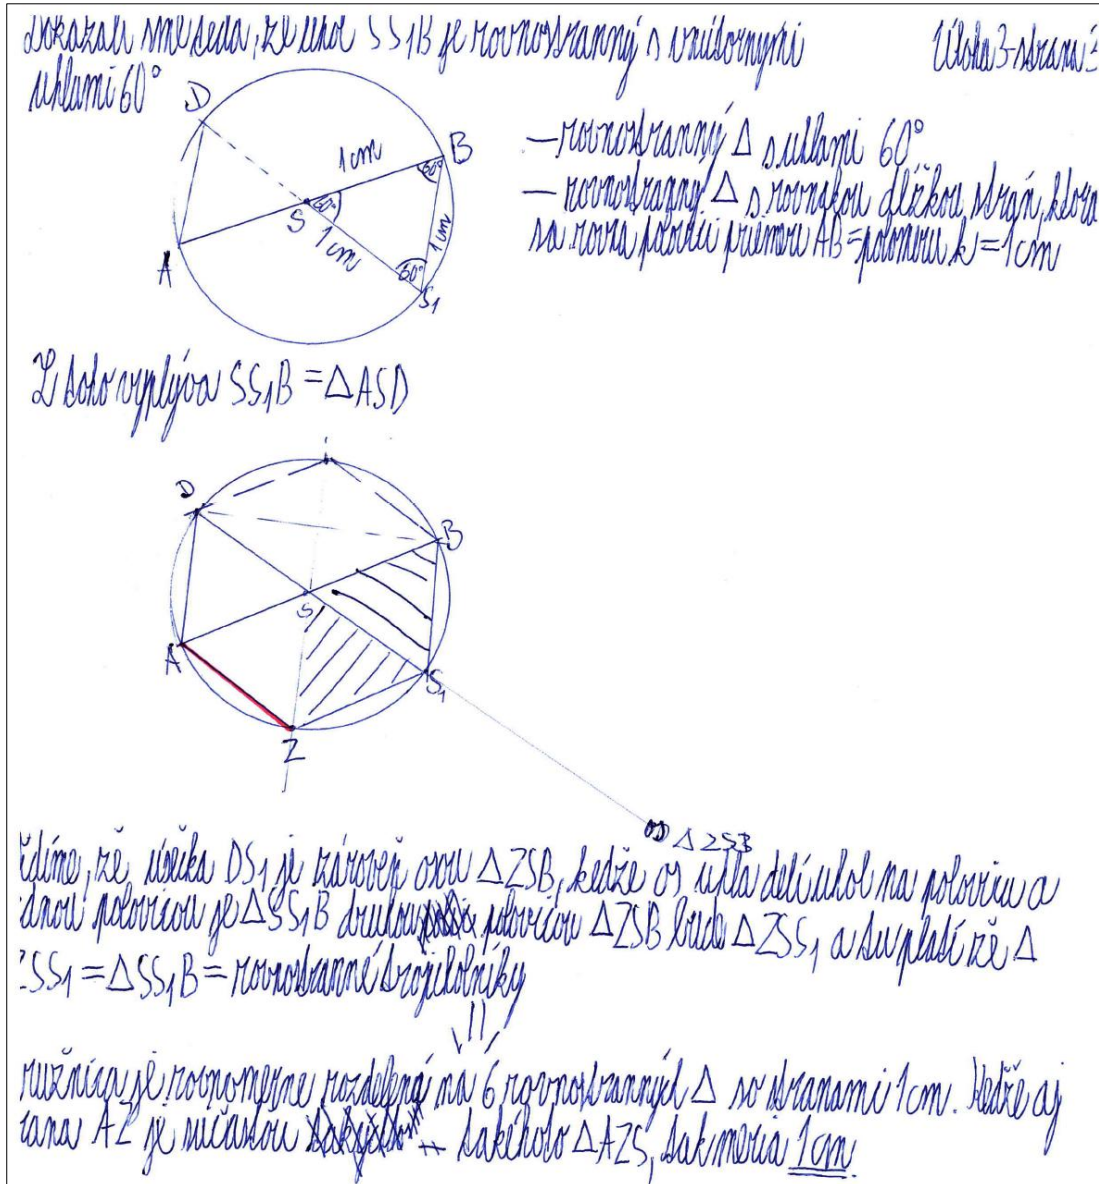 Dokázali sme teda, že uhol SS₁B je rovnostranný s vnútornými
Úloha 3 - strana
uhlami 60°
D
1cm
B
60°
S
60°
1cm
1cm
60°
A
S₁
— rovnostranný Δ s uhlami 60°
— rovnostranný Δ s rovnakou dĺžkou strán, ktorá
sa rovná polovici priemeru AB = polomeru k = 1cm
Z toho vyplýva SS₁B = ΔASD
D
B
S
A
S₁
Z
os ΔZSB
idíme, že úsečka DS₁ je zároveň osou ΔZSB, kedže os uhla delí uhol na polovicu a
dnou polovicou je ΔSS₁B druhou polovicou ΔZSB bude ΔZSS₁ a tu platí že Δ
ZSS₁ = ΔSS₁B = rovnostranné trojuholníky
ružnica je rovnomerne rozdelená na 6 rovnostranných Δ so stranami 1cm. Kedže aj
rana AZ je súčasťou takéhoto ΔAZS, tak meria 1cm.